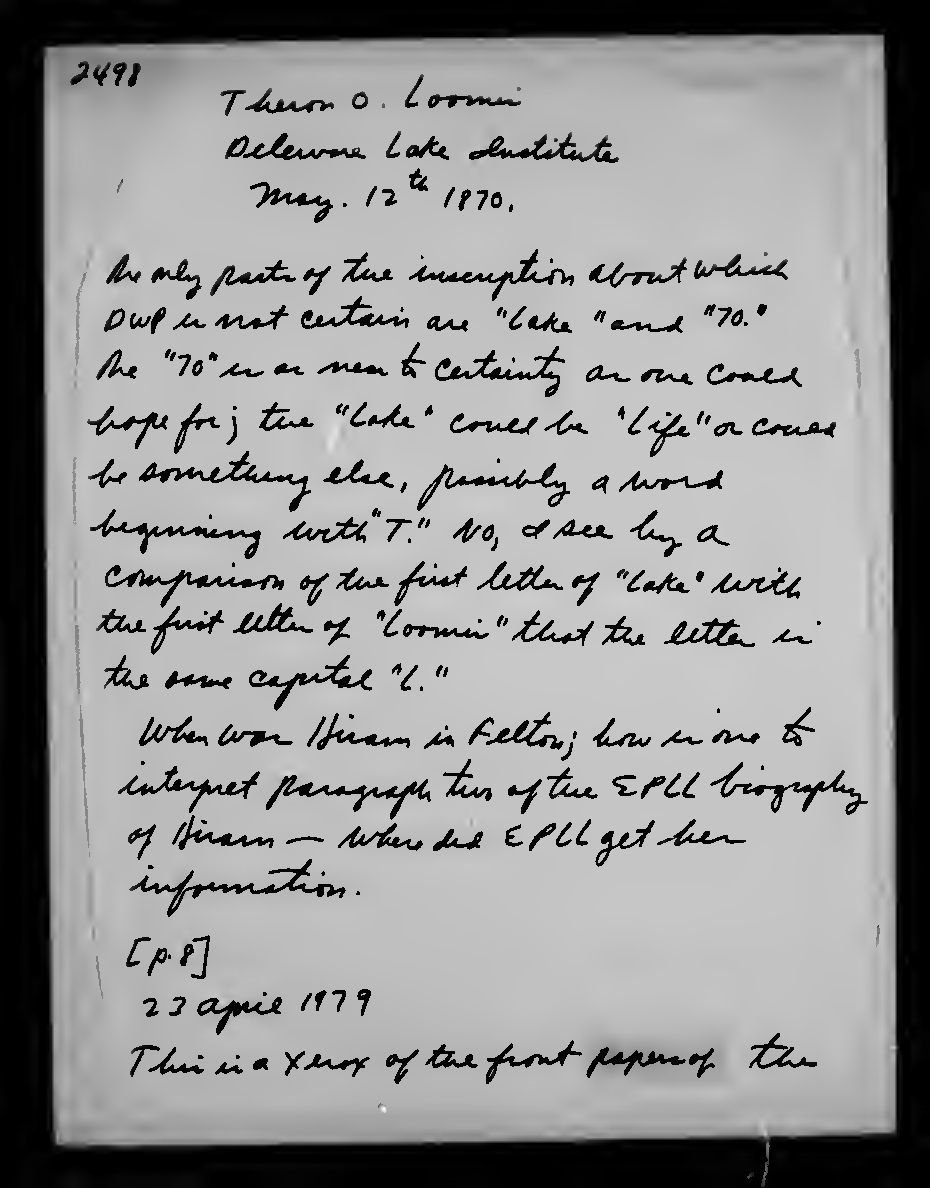 2498
Theron O. Loomis
Delaware Lake Institute
May. 12th 1870.
The only parts of the inscription about which
DWP is not certain are "Lake" and "70."
The "70" is as near to certainty as one could
hope for; the "Lake" could be "Life" or could
be something else, possibly a word
beginning with "T." No, I see by a
comparison of the first letter of "Lake" with
the first letter of "Loomis" that the letter is
the same capital "L."
When was Hiram in Felton; how is one to
interpret paragraph two of the EPLL biography
of Hiram — Where did EPLL get her
information.
[p. 8]
23 April 1979
This is a Xerox of the front papers of the